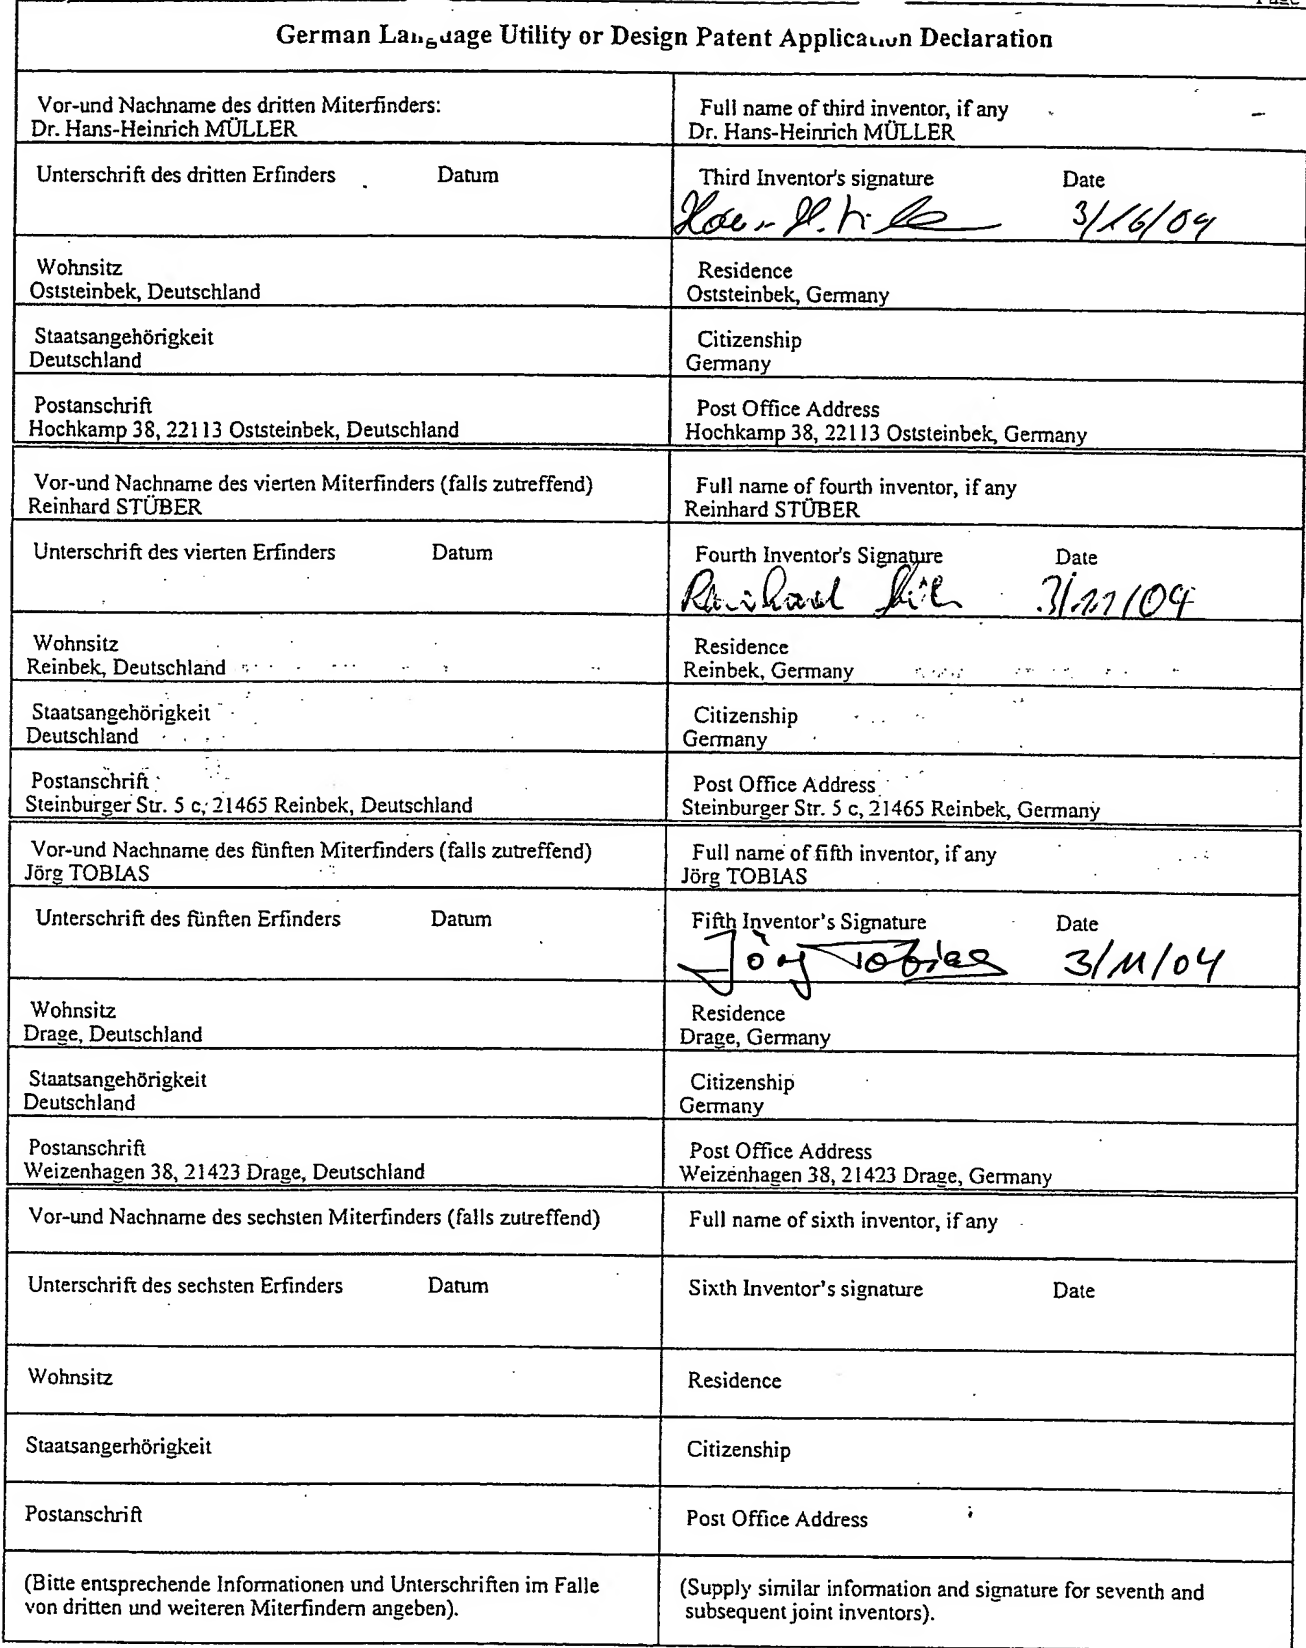 German Language Utility or Design Patent Application Declaration
Vor-und Nachname des dritten Miterfinders:
Dr. Hans-Heinrich MÜLLER
Full name of third inventor, if any
Dr. Hans-Heinrich MÜLLER
Unterschrift des dritten Erfinders Datum
Third Inventor's signature Date
3/16/04
Wohnsitz
Oststeinbek, Deutschland
Residence
Oststeinbek, Germany
Staatsangehörigkeit
Deutschland
Citizenship
Germany
Postanschrift
Hochkamp 38, 22113 Oststeinbek, Deutschland
Post Office Address
Hochkamp 38, 22113 Oststeinbek, Germany
Vor-und Nachname des vierten Miterfinders (falls zutreffend)
Reinhard STÜBER
Full name of fourth inventor, if any
Reinhard STÜBER
Unterschrift des vierten Erfinders Datum
Fourth Inventor's Signature Date
Reinhard 3/11/04
Wohnsitz
Reinbek, Deutschland
Residence
Reinbek, Germany
Staatsangehörigkeit
Deutschland
Citizenship
Germany
Postanschrift
Steinburger Str. 5 c, 21465 Reinbek, Deutschland
Post Office Address
Steinburger Str. 5 c, 21465 Reinbek, Germany
Vor-und Nachname des fünften Miterfinders (falls zutreffend)
Jörg TOBIAS
Full name of fifth inventor, if any
Jörg TOBIAS
Unterschrift des fünften Erfinders Datum
Fifth Inventor's Signature Date
Jörg Tobias 3/11/04
Wohnsitz
Drage, Deutschland
Residence
Drage, Germany
Staatsangehörigkeit
Deutschland
Citizenship
Germany
Postanschrift
Weizenhagen 38, 21423 Drage, Deutschland
Post Office Address
Weizenhagen 38, 21423 Drage, Germany
Vor-und Nachname des sechsten Miterfinders (falls zutreffend)
Full name of sixth inventor, if any
Unterschrift des sechsten Erfinders Datum
Sixth Inventor's signature Date
Wohnsitz
Residence
Staatsangerhörigkeit
Citizenship
Postanschrift
Post Office Address
(Bitte entsprechende Informationen und Unterschriften im Falle
von dritten und weiteren Miterfindern angeben).
(Supply similar information and signature for seventh and
subsequent joint inventors).